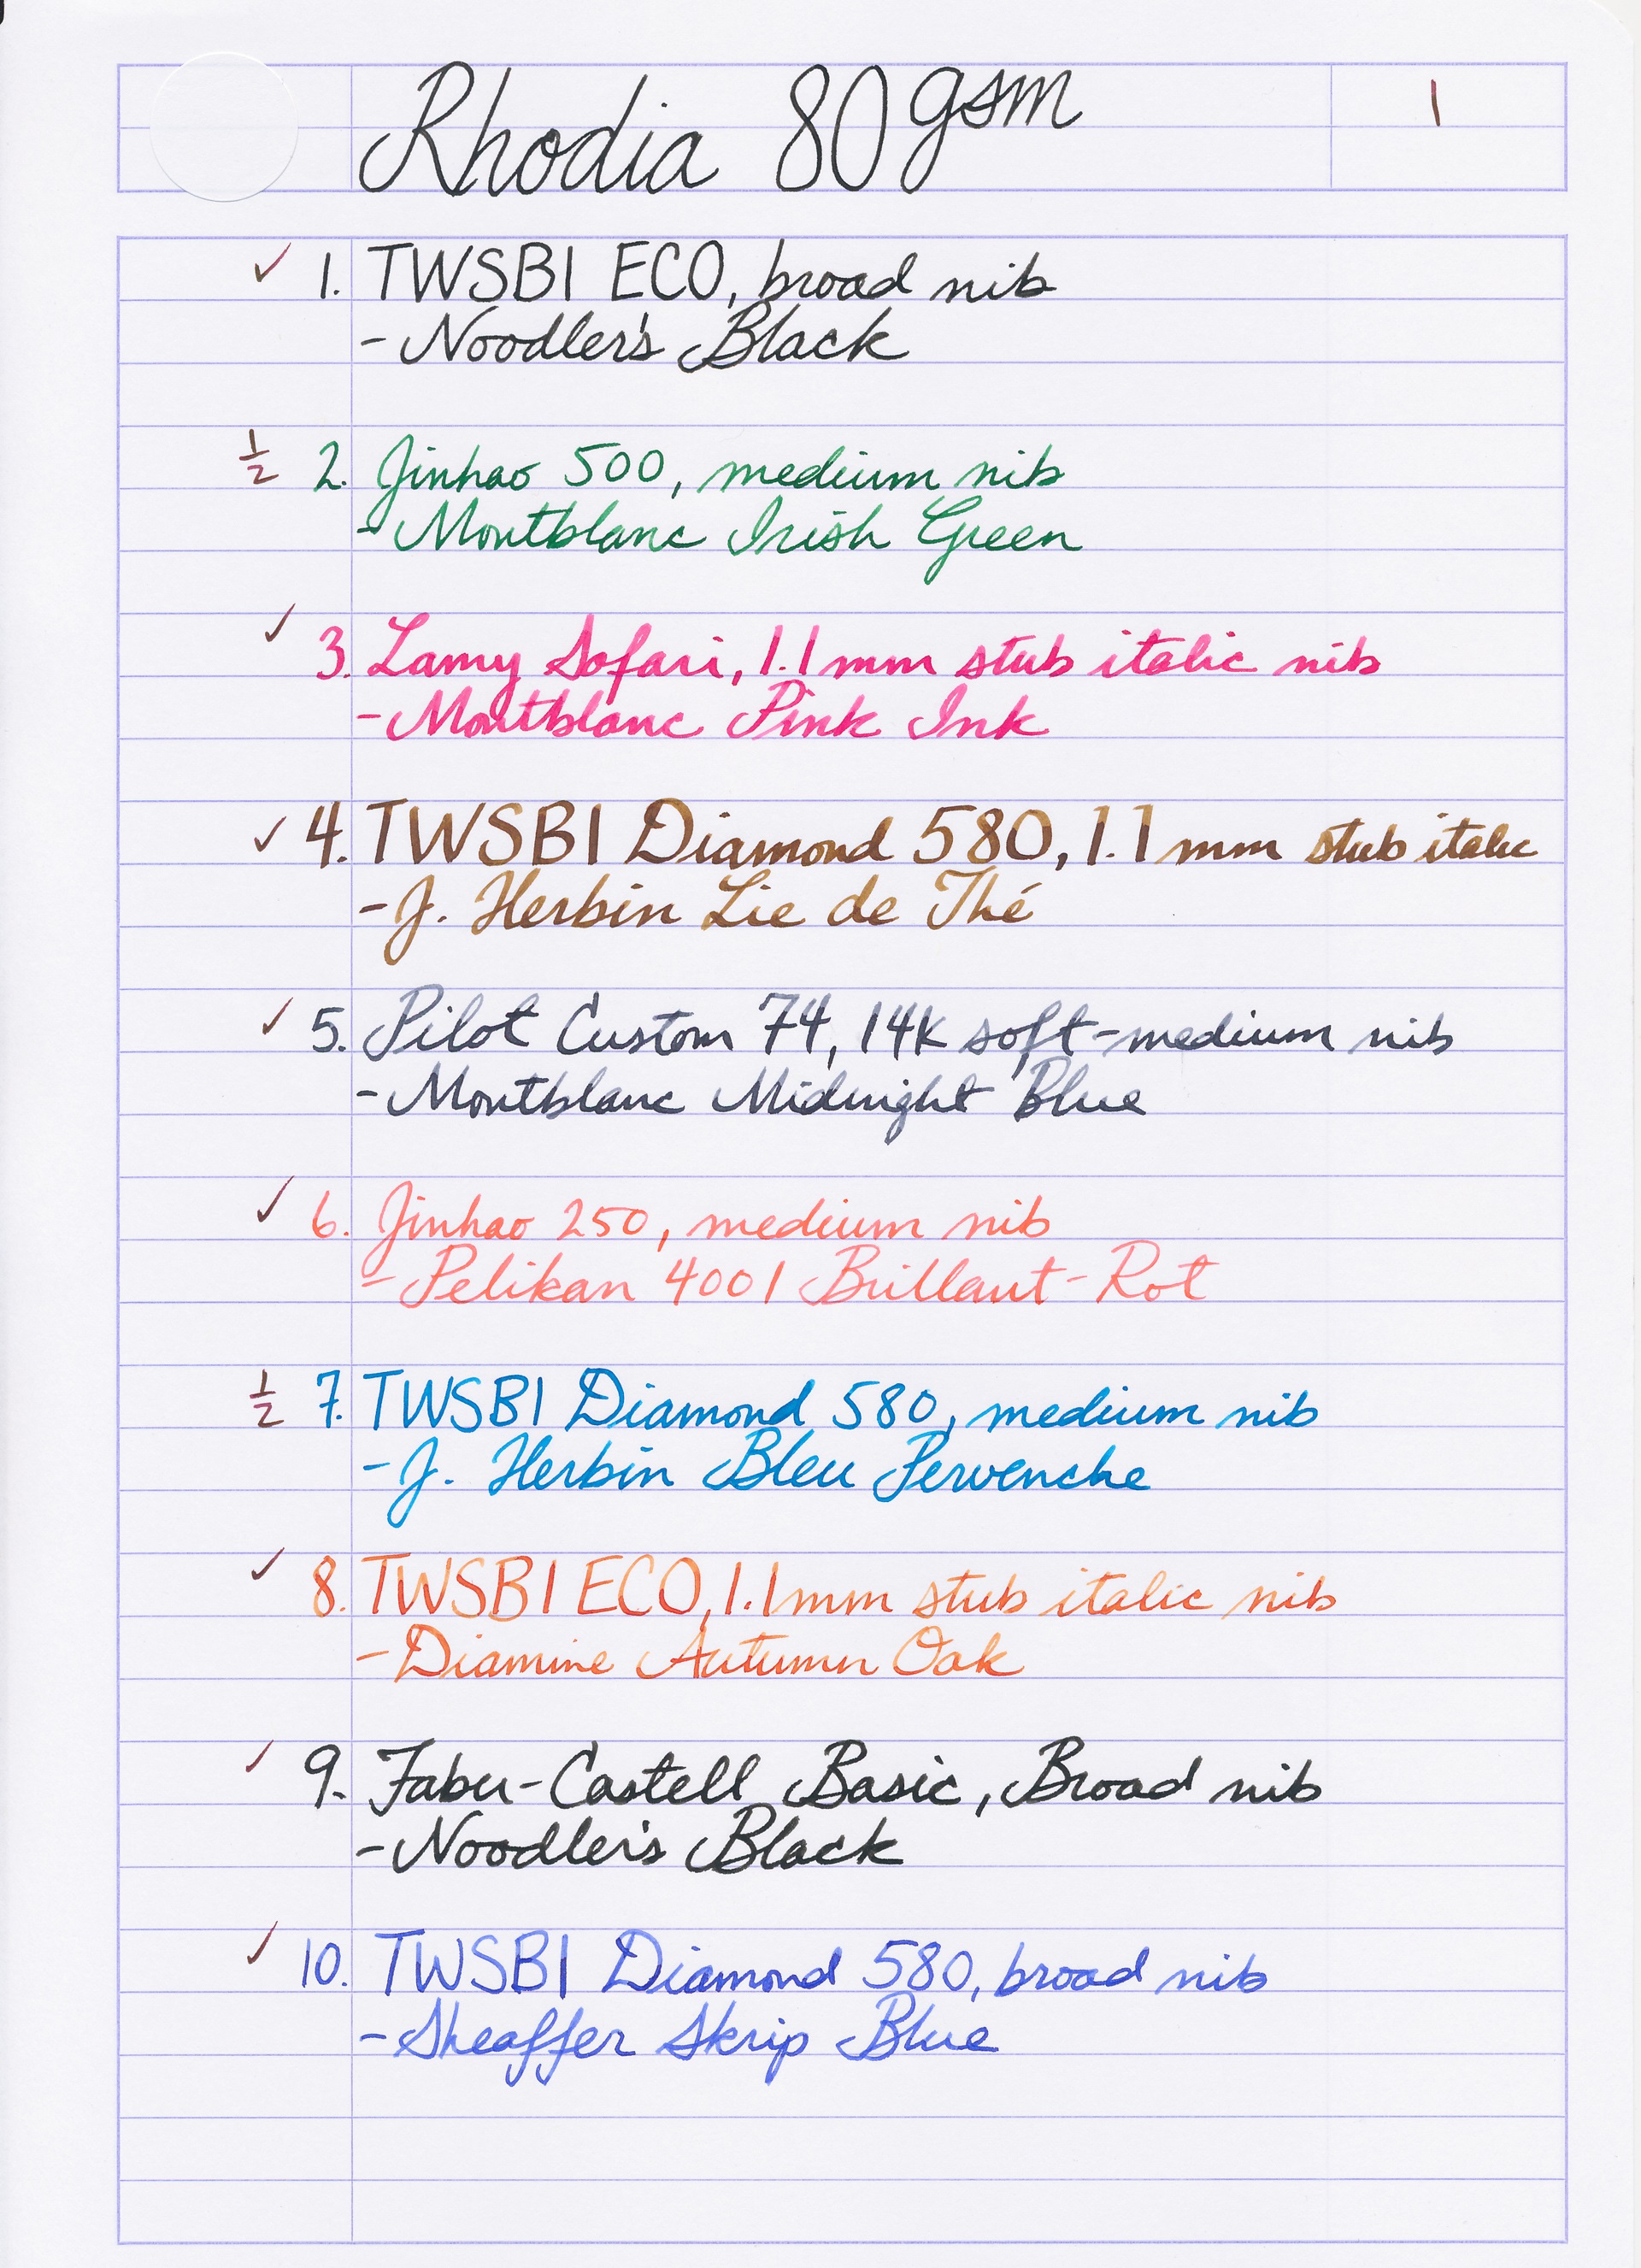 Rhodia 80gsm 1
✓ 1. TWSBI ECO, broad nib
- Noodler's Black
½ 2. Jinhao 500, medium nib
- Montblanc Irish Green
✓ 3. Lamy Safari, 1.1mm stub italic nib
- Montblanc Pink Ink
✓ 4. TWSBI Diamond 580, 1.1mm stub italic
- J. Herbin Lie de Thé
✓ 5. Pilot Custom 74, 14K soft-medium nib
- Montblanc Midnight Blue
✓ 6. Jinhao 250, medium nib
- Pelikan 4001 Brillant-Rot
½ 7. TWSBI Diamond 580, medium nib
- J. Herbin Bleu Pervenche
✓ 8. TWSBI ECO, 1.1mm stub italic nib
- Diamine Autumn Oak
✓ 9. Faber-Castell Basic, Broad nib
- Noodler's Black
✓ 10. TWSBI Diamond 580, broad nib
- Sheaffer Skrip Blue